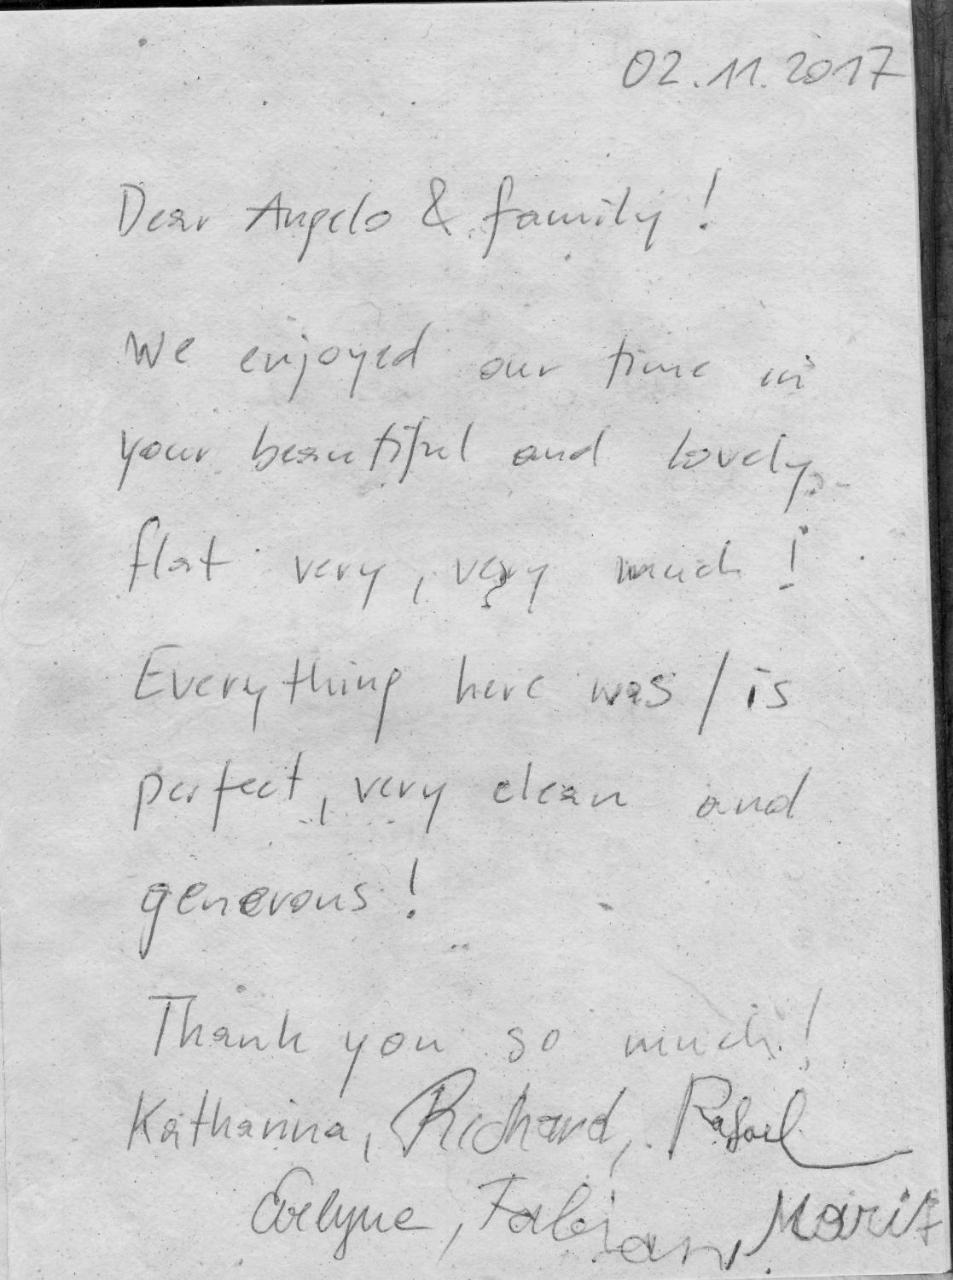 02.11.2017
Dear Angelo & family!
We enjoyed our time in
your beautiful and lovely
flat very, very much!
Everything here was / is
perfect, very clean and
generous!
Thank you so much!
Katharina, Richard, Rafael
Evelyne, Fabian, Marit